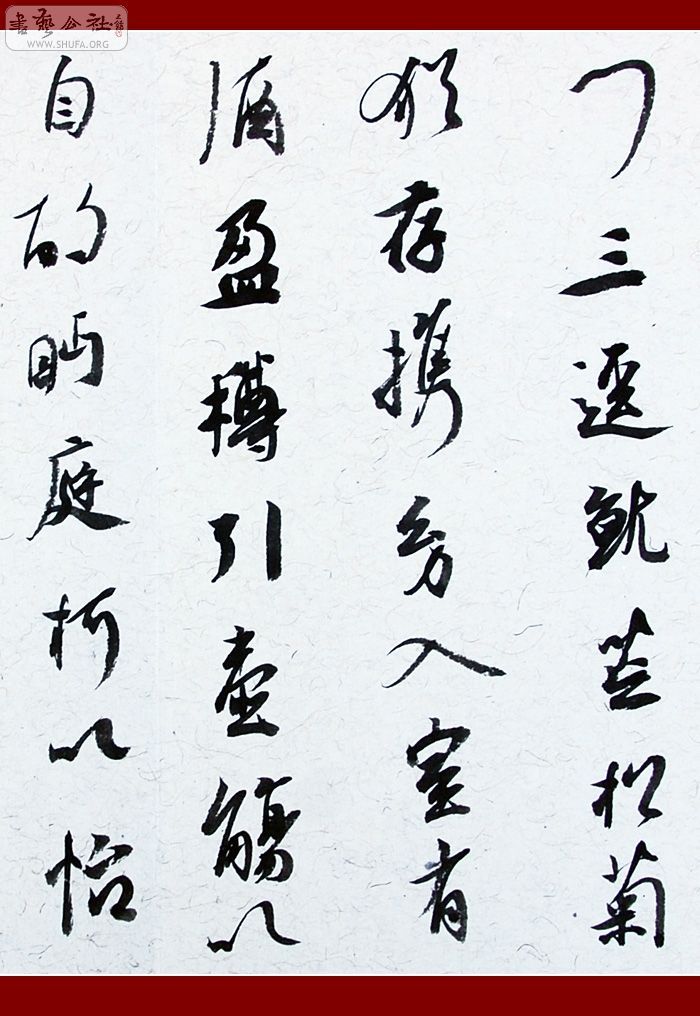 書藝公社
WWW.SHUFA.ORG
门三迳就荒松菊
猶存携幼入室有
酒盈樽引壺觴以
自酌眄庭柯以怡